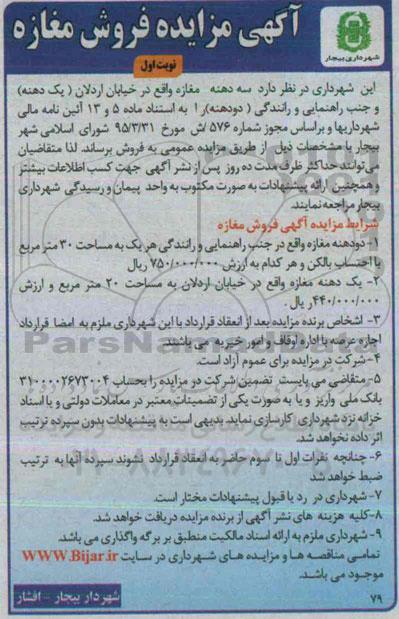 آگهی مزایده فروش مغازه
شهرداری بیجار
نوبت اول
این شهرداری در نظر دارد سه دهنه مغازه واقع در خیابان اردلان ( یک دهنه)
و جنب راهنمایی و رانندگی ( دودهنه)را به استناد ماده ۵ و ۱۳ آئین نامه مالی
شهرداریها و براساس مجوز شماره ۵۷۶/ش مورخ ۹۵/۳/۳۱ شورای اسلامی شهر
بیجار با مشخصات ذیل از طریق مزایده عمومی به فروش برساند. لذا متقاضیان
می‌توانند حداکثر ظرف مدت ده روز پس از نشر آگهی جهت کسب اطلاعات بیشتر
و همچنین ارائه پیشنهادات به صورت مکتوب به واحد پیمان و رسیدگی شهرداری
بیجار مراجعه نمایند.
شرایط مزایده آگهی فروش مغازه
۱- دودهنه مغازه واقع در جنب راهنمایی و رانندگی هر یک به مساحت ۳۰ متر مربع
با احتساب بالکن و هر کدام به ارزش ۷۵۰/۰۰۰/۰۰۰ ریال
۲- یک دهنه مغازه واقع در خیابان اردلان به مساحت ۲۰ متر مربع و ارزش
۴۴۰/۰۰۰/۰۰۰ ریال.
۳- اشخاص برنده مزایده بعد از انعقاد قرارداد با این شهرداری ملزم به امضا قرارداد
اجاره عرصه با اداره اوقاف و امور خیریه می باشند
۴- شرکت در مزایده برای عموم آزاد است.
۵- متقاضی می بایست تضمین شرکت در مزایده را بحساب ۳۱۰۰۰۰۲۶۷۳۰۰۴
بانک ملی واریز و یا به صورت یکی از تضمینات معتبر در معاملات دولتی و یا اسناد
خزانه نزد شهرداری کارسازی نماید بدیهی است به پیشنهادات بدون سپرده ترتیب
اثر داده نخواهد شد.
۶- چنانچه نفرات اول تا سوم حاضر به انعقاد قرارداد نشوند سپرده آنها به ترتیب
ضبط خواهد شد
۷- شهرداری در رد یا قبول پیشنهادات مختار است.
۸- کلیه هزینه های نشر آگهی از برنده مزایده دریافت خواهد شد.
۹- شهرداری ملزم به ارائه اسناد مالکیت منطبق بر برگه واگذاری می باشد.
تمامی مناقصه ها و مزایده های شهرداری در سایت WWW.Bijar.ir
موجود می باشد.
شهردار بیجار - افشار
۷۹